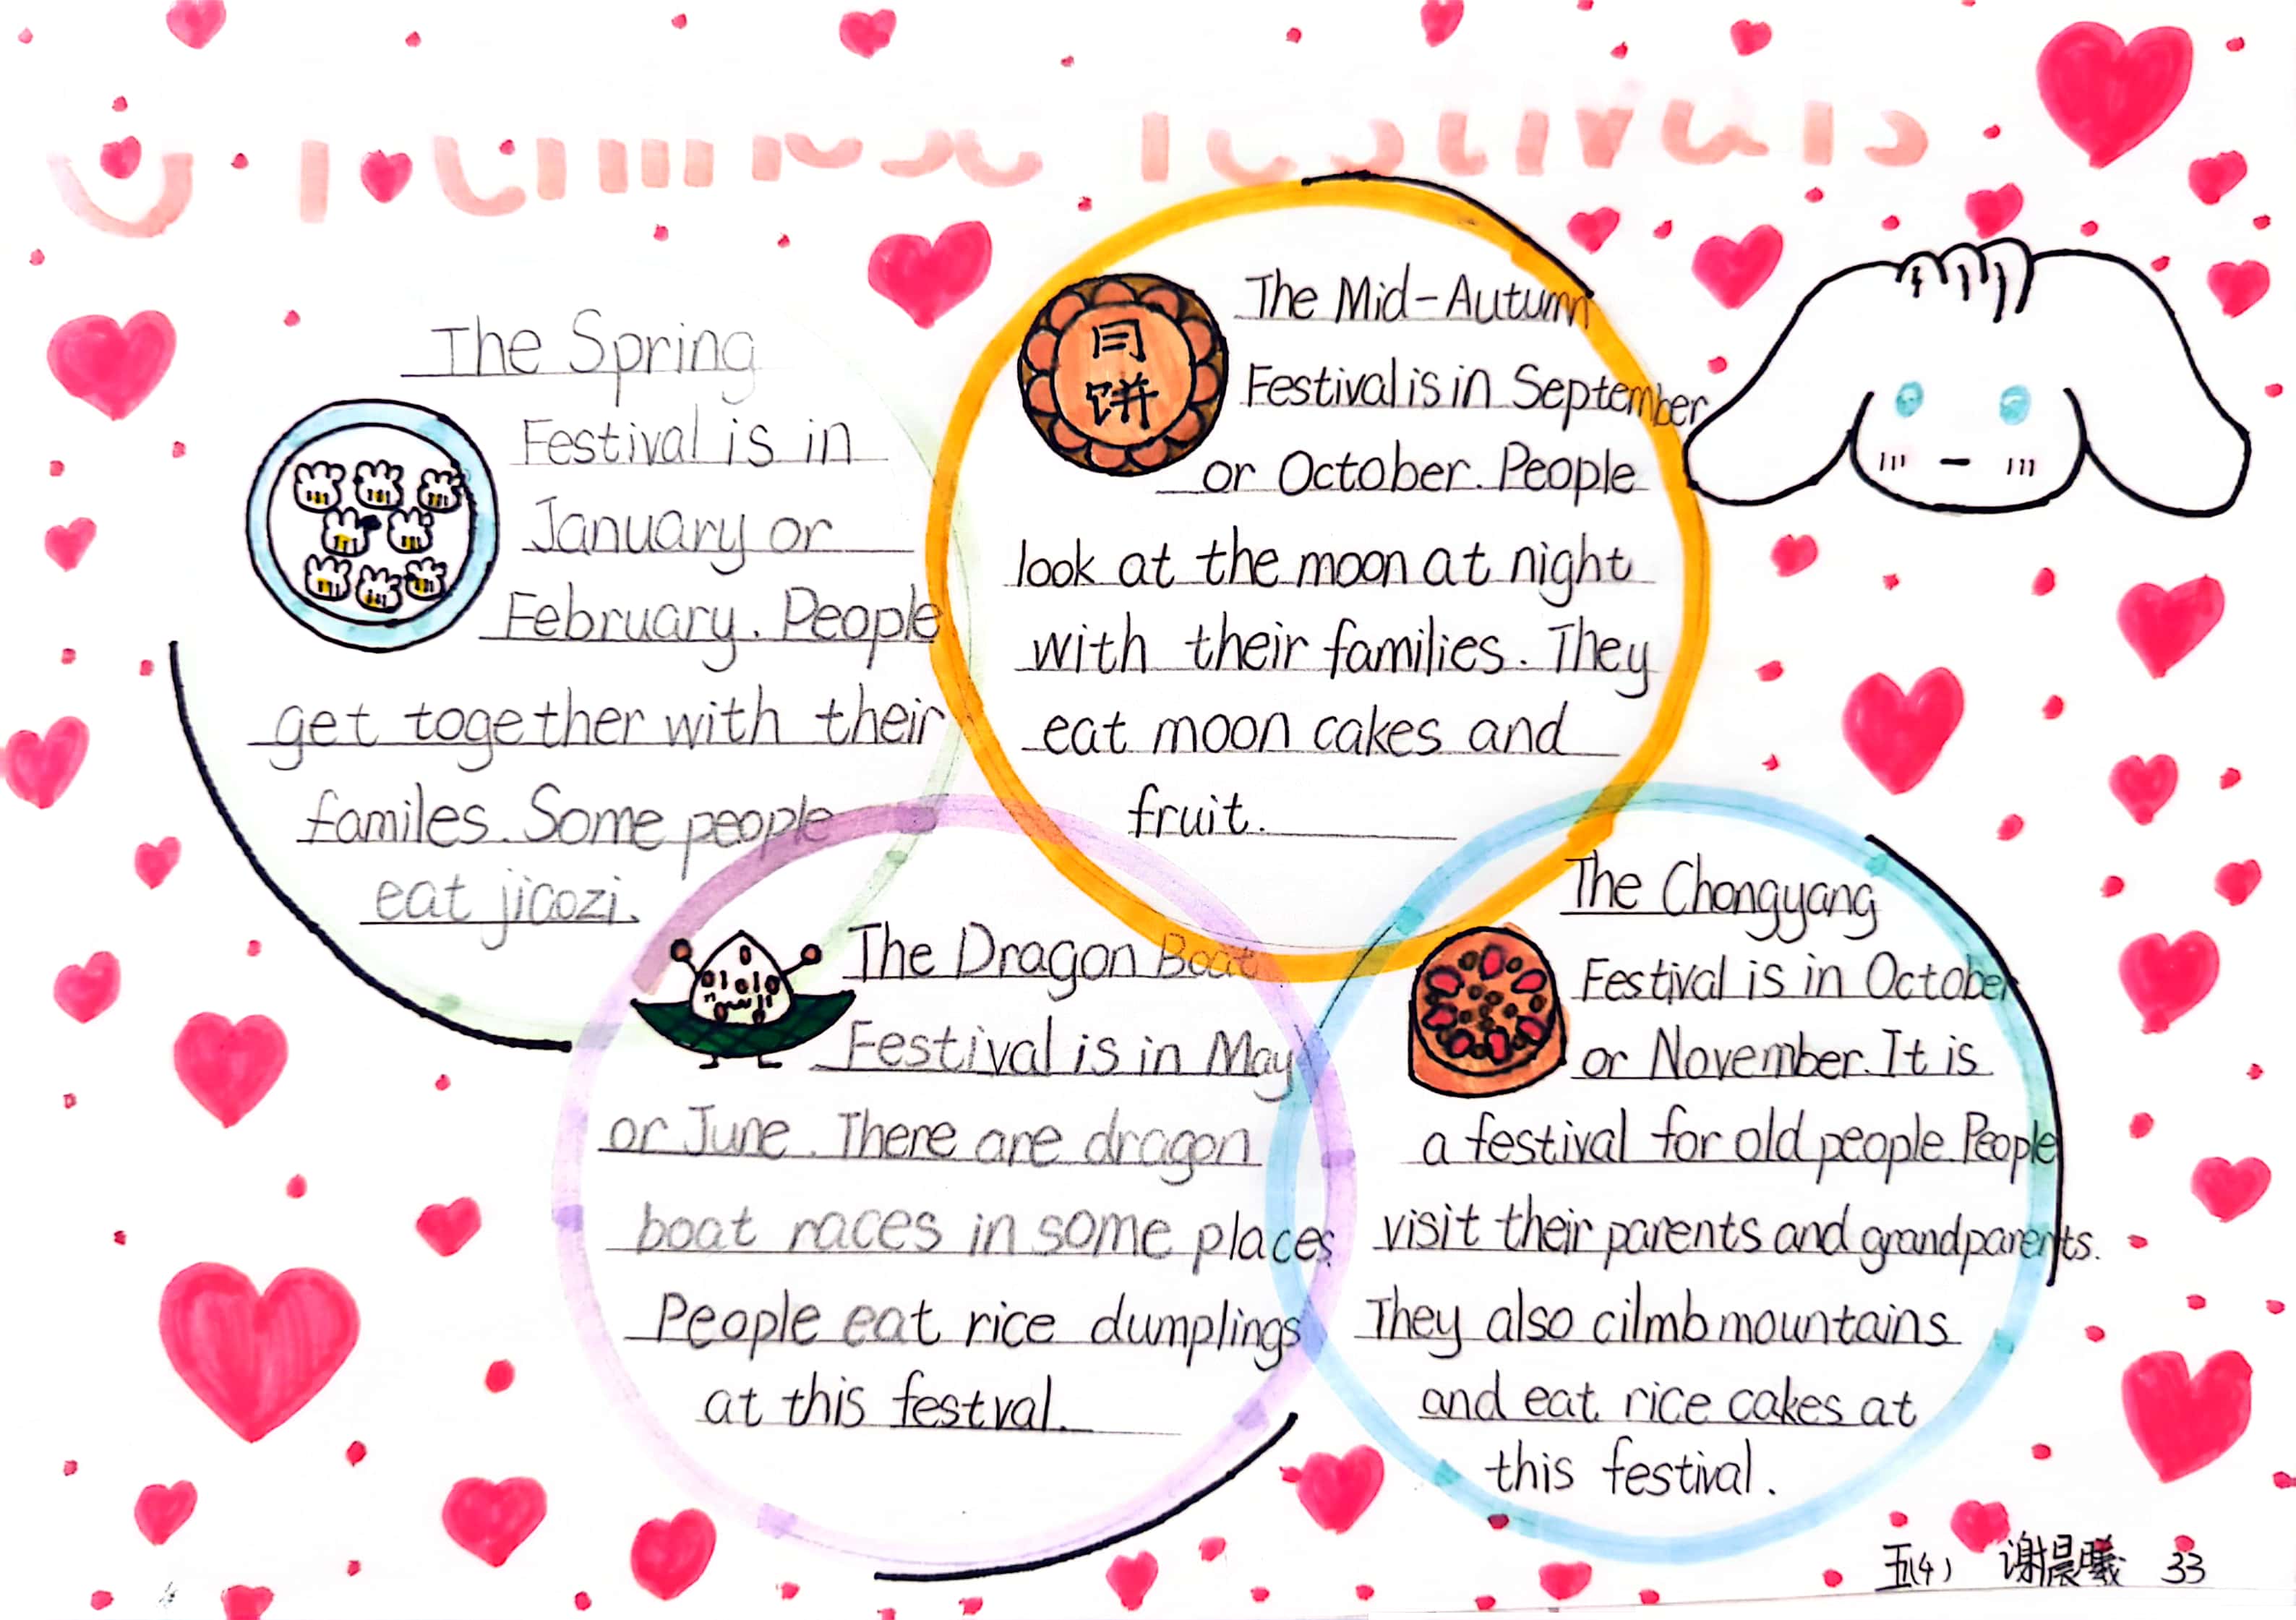 The Spring
Festival is in
January or
February. People
get together with their
familes. Some people
eat jiaozi.
月
饼
The Mid-Autumn
Festival is in September
or October. People
look at the moon at night
with their families. They
eat moon cakes and
fruit.
The Dragon Boat
Festival is in May
or June. There are dragon
boat races in some places
People eat rice dumplings
at this festval.
The Chongyang
Festival is in October
or November. It is
a festival for old people. People
visit their parents and grandparents.
They also cilmb mountains
and eat rice cakes at
this festival.
五(4) 谢晨曦 33